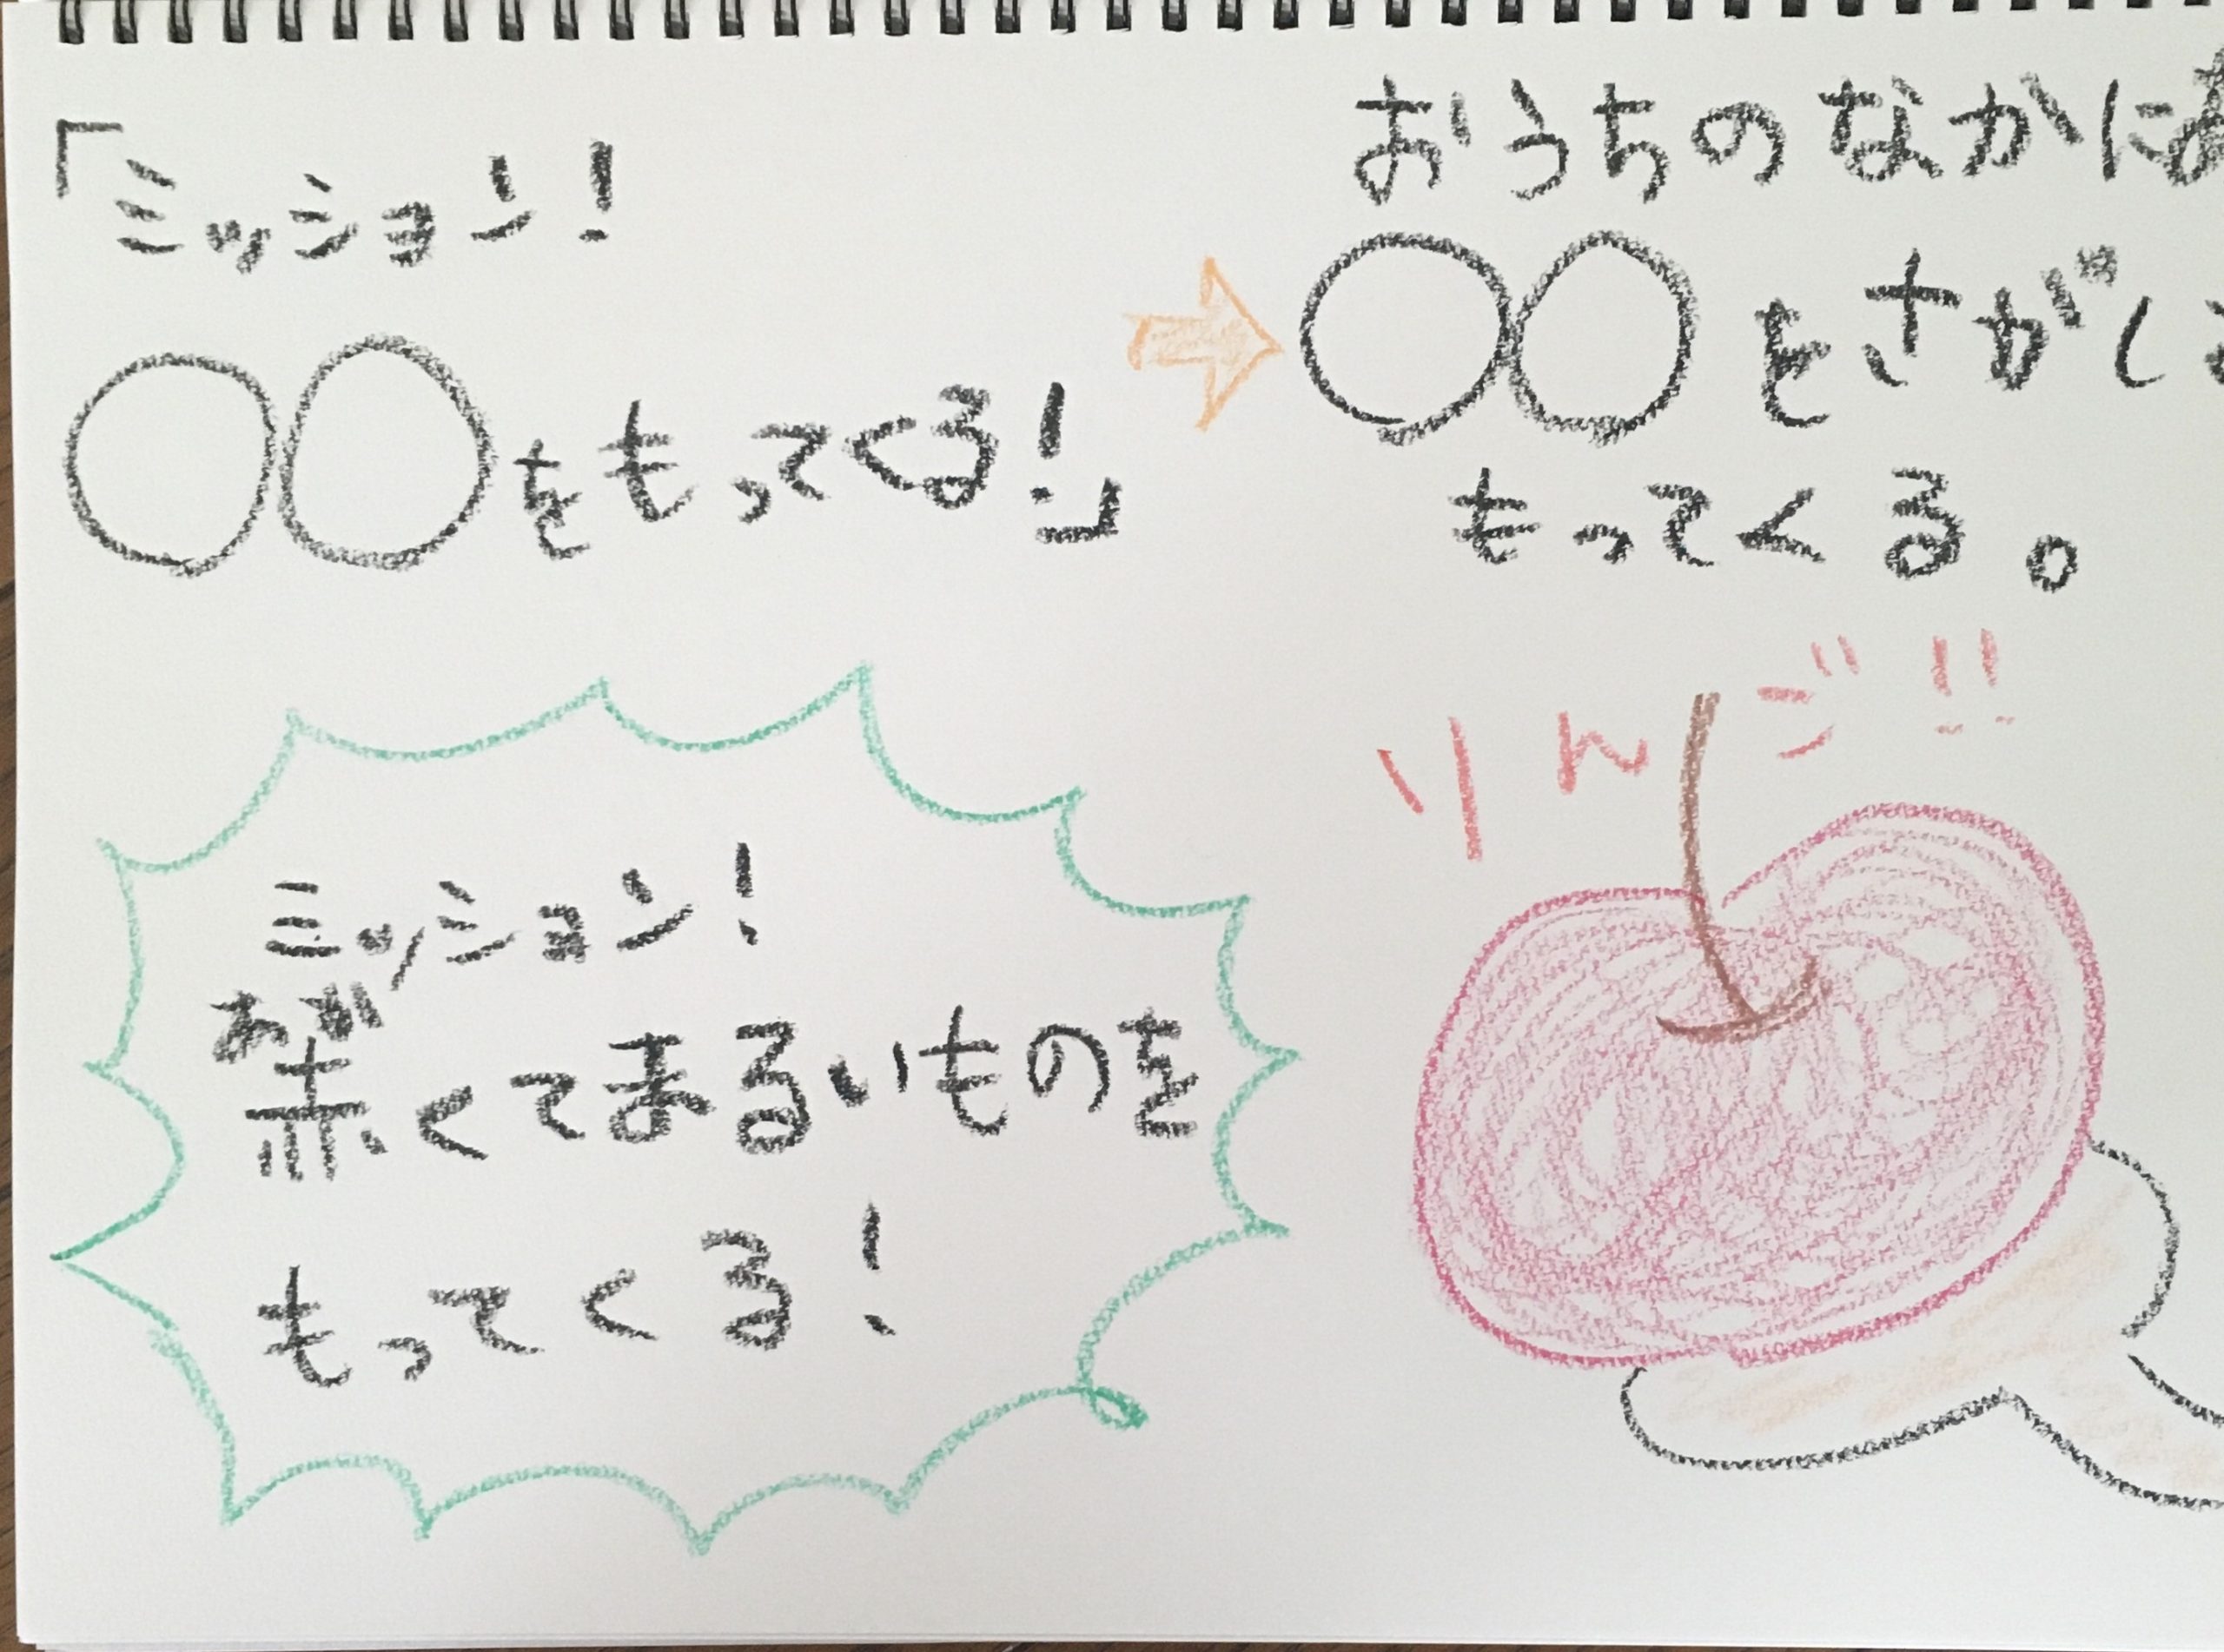 「ミッション!
○○をもってくる!」
おうちのなかにあ
○○をさがし
もってくる。
ミッション!
あか
赤くてまるいものを
もってくる!
りんご!!